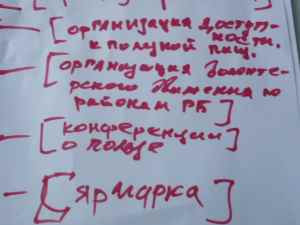 [организация доступ-
ности
к полезной пищ.
[организация волонте-
рского движения по
районам РБ]
[конференции
о пользе
- [ярмарка]